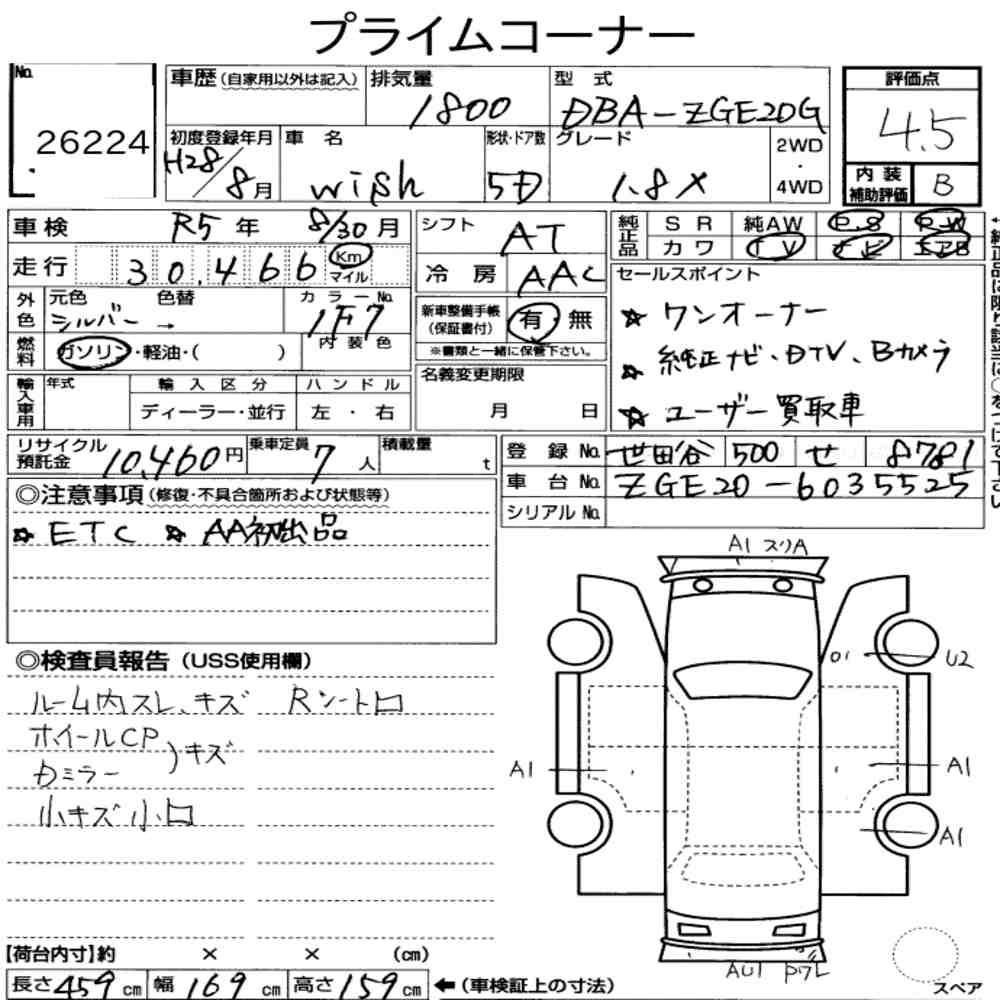 プライムコーナー
No. 26224
車歴(自家用以外は記入)
排気量 1800
型式 DBA-ZGE20G
評価点 4.5
初度登録年月 H28/8月
車名 wish
形状・ドア数 5D
グレード 1.8X
2WD・4WD
内装補助評価 B
車検 R5年 8/30月
走行 30,466 Km マイル
シフト AT
冷房 AAC
純正品 SR 純AW P.S P.W
カワ TV ナビ エアB
外色 元色 シルバー → 色替
カラーNo. 1F7
燃料 ガソリン・軽油・( )
内装色
新車整備手帳(保証書付) 有 無
※書類と一緒に保管下さい。
セールスポイント
☆ ワンオーナー
☆ 純正ナビ、DTV、Bカメラ
☆ ユーザー買取車
輸入車用 年式 輸入区分 ハンドル
ディーラー・並行 左・右
名義変更期限 月 日
リサイクル預託金 10,460円
乗車定員 7人
積載量 t
登録No. 世田谷 500 せ 8781
車台No. ZGE20-6035525
シリアルNo.
◎注意事項(修復・不具合箇所および状態等)
☆ ETC ☆ AA初出品
◎検査員報告(USS使用欄)
ルーム内スレ、キズ Rシート口
ホイールCP
ドミラー )キズ
小キズ小口
A1 スリA
01 U2
A1 A1
A1
AU1 Pワレ
スペア
【荷台内寸】約 × × (cm)
長さ 459 cm 幅 169 cm 高さ 159 cm ←(車検証上の寸法)